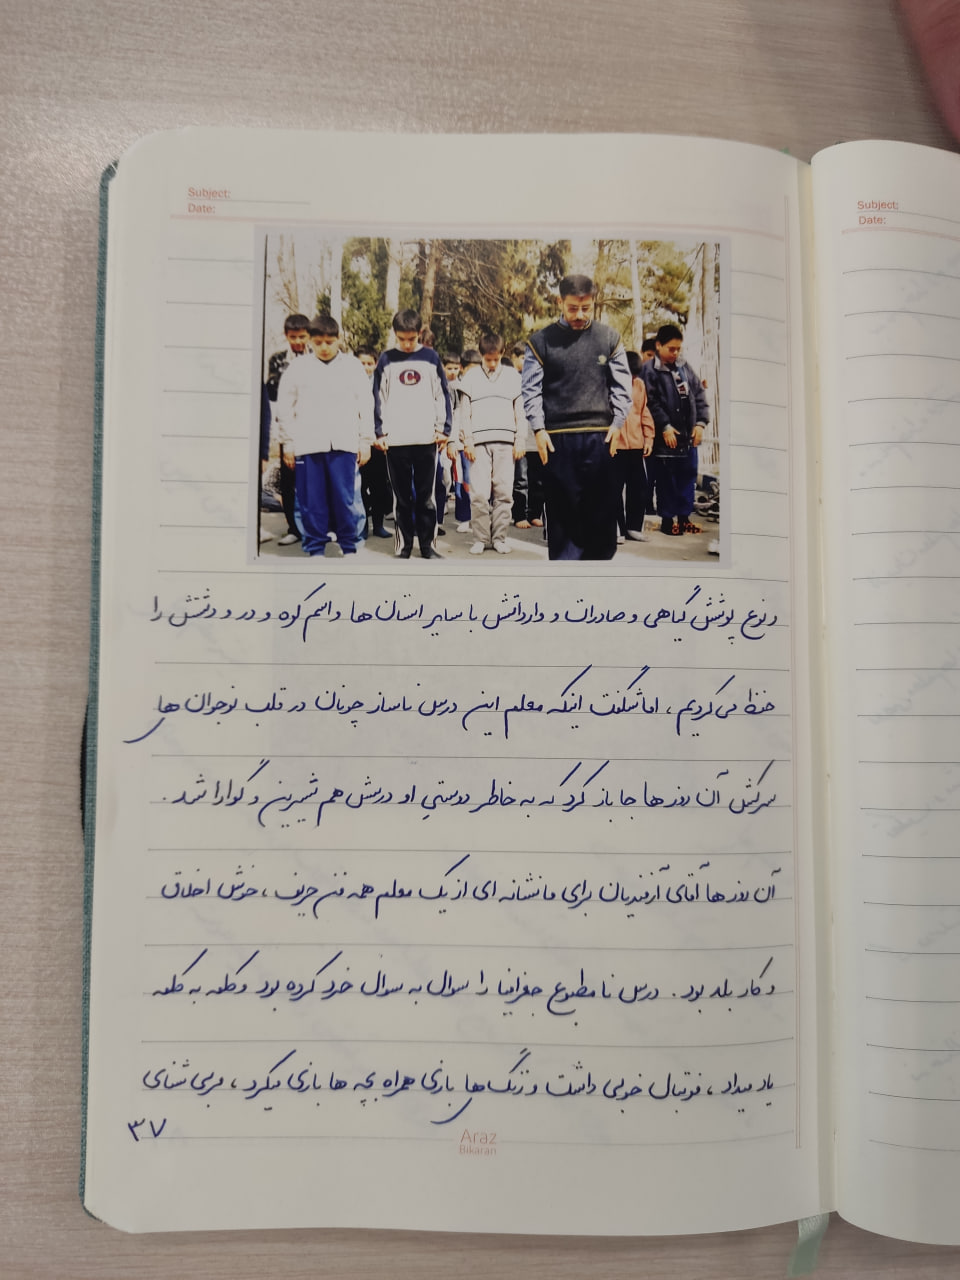 Subject:
Date:
Subject:
Date:
C
و نوع پوشش گیاهی و صادرات و وارداتش با سایر استان ها و اسم کوه و در و دشتش را
حفظ می کردیم ، اما شگفت اینکه معلم این درس ناساز چونان در قلب نوجوان های
سرکش آن روزها جا باز کرد که به خاطر دوستیِ او درسش هم شیرین و گوارا شد .
آن روزها آقای آزفندیان برای ما نشانه ای از یک معلم همه فن حریف ، خوش اخلاق
و کار بلد بود . درس نامطبوع جغرافیا را سوال به سوال خرد کرده بود و کلمه به کلمه
یاد میداد ، فوتبال خوبی داشت و زنگ های بازی همراه بچه ها بازی میکرد ، مربی شنای
۳۷
Araz
Bikaran